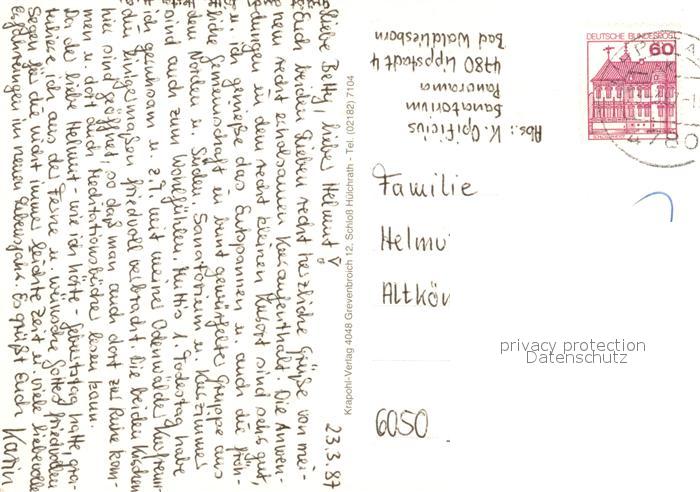 23.3.87
Liebe Betty, lieber Helmut!
Euch beiden Lieben recht herzliche Grüße von mei-
nem recht einsamen Kuraufenthalt. Die Anwen-
dungen in dem recht kleinen Kurort sind sehr gut,
u. ich genieße das Entspannen u. auch die fröh-
liche Gemeinschaft in bunt gewürfelter Gruppe aus
dem Norden u. Süden. Sanatorium u. Kurzimmer
sind auch zum Wohlfühlen. Muttis 1. Todestag habe
ich gemeinsam u. z.T. mit meiner Odenwälder Kurfreun-
din einigermaßen friedvoll verbracht. Die beiden Kirchen
hier sind geöffnet, so daß man auch dort zur Ruhe kom-
men u. dort auch Meditationsbücher lesen kann.
Da der liebe Helmut - wie ich hörte - Geburtstag hatte, gra-
tuliere ich aus der Ferne u. wünsche Gottes friedvollen
Segen für die nicht immer leichte Zeit u. viele liebevolle
Erfahrungen im neuen Lebensjahr. Es grüßt Euch
Karin
Krapohl-Verlag 4048 Grevenbroich 12, Schloß Hülchrath - Tel. (02182) 7104
Abs.: K. Opificius
Sanatorium
Panorama
4780 Lippstadt 4
Bad Waldliesborn
DEUTSCHE BUNDESPOST
60
4780
Familie
Helmu
Altkön
6050
privacy protection
Datenschutz